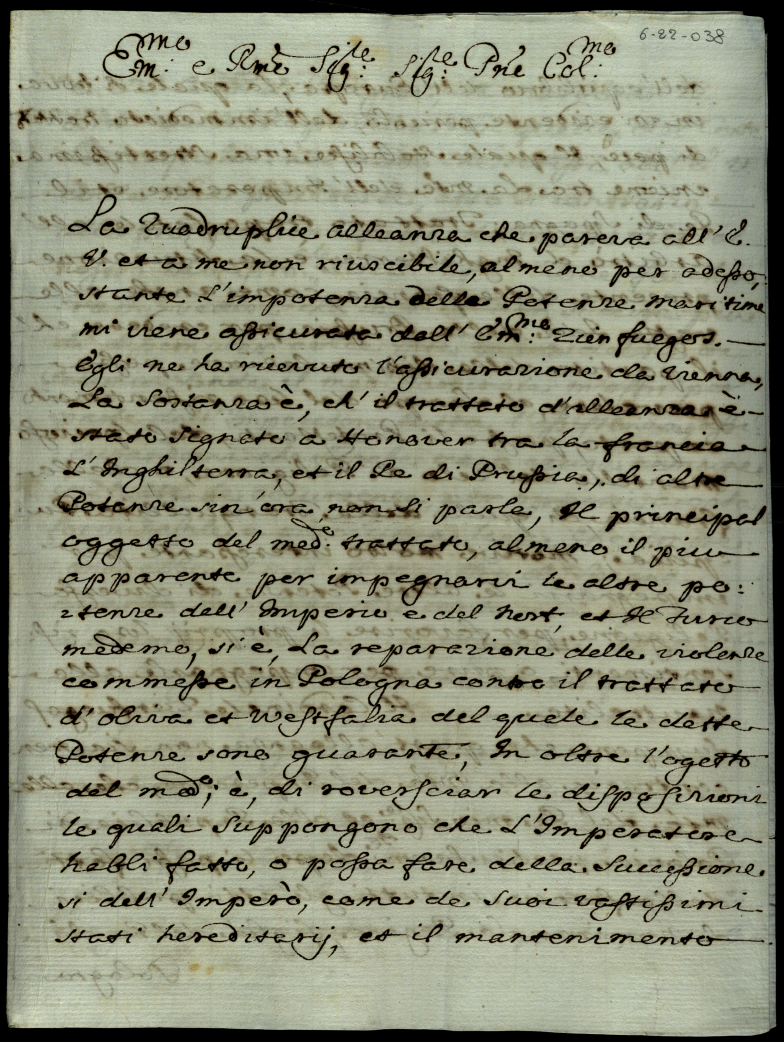 6-22-038
Em:mo e Rmo Sig:re Sig:re Pne Col:mo
La Quadruplice alleanza che pareva all' E.
V. et a me non riuscibile, almeno per adesso,
stante L'impotenza delle Potenze maritime
mi viene assicurata dall' Em:mo Zienfuegos.
Egli ne ha ricevuto l'assicurazione da Vienna,
La sostanza è, ch' il trattato d'alleanza è
stato signato a Honover tra la francia
L'Inghilterra, et il Re di Prussia, di altre
Potenze sin' ora non si parla, Il principal
oggetto del med:o trattato, almeno il piu
apparente per impegnarvi le altre po:
:tenze dell' Imperio e del Nort, et Il Turco
medemo, si è, La reparazione delle violenze
commesse in Pologna contro il trattato
d'oliva et Westfalia del quale le dette
Potenze sono guarante, In oltre l'ogetto
del med:o è, di roversciar le disposizioni
le quali suppongono che L'Imperatore
habbi fatto, o possa fare della Successione
si dell' Imperò, come de suoi vastissimi
stati hereditarij, et il mantenimento